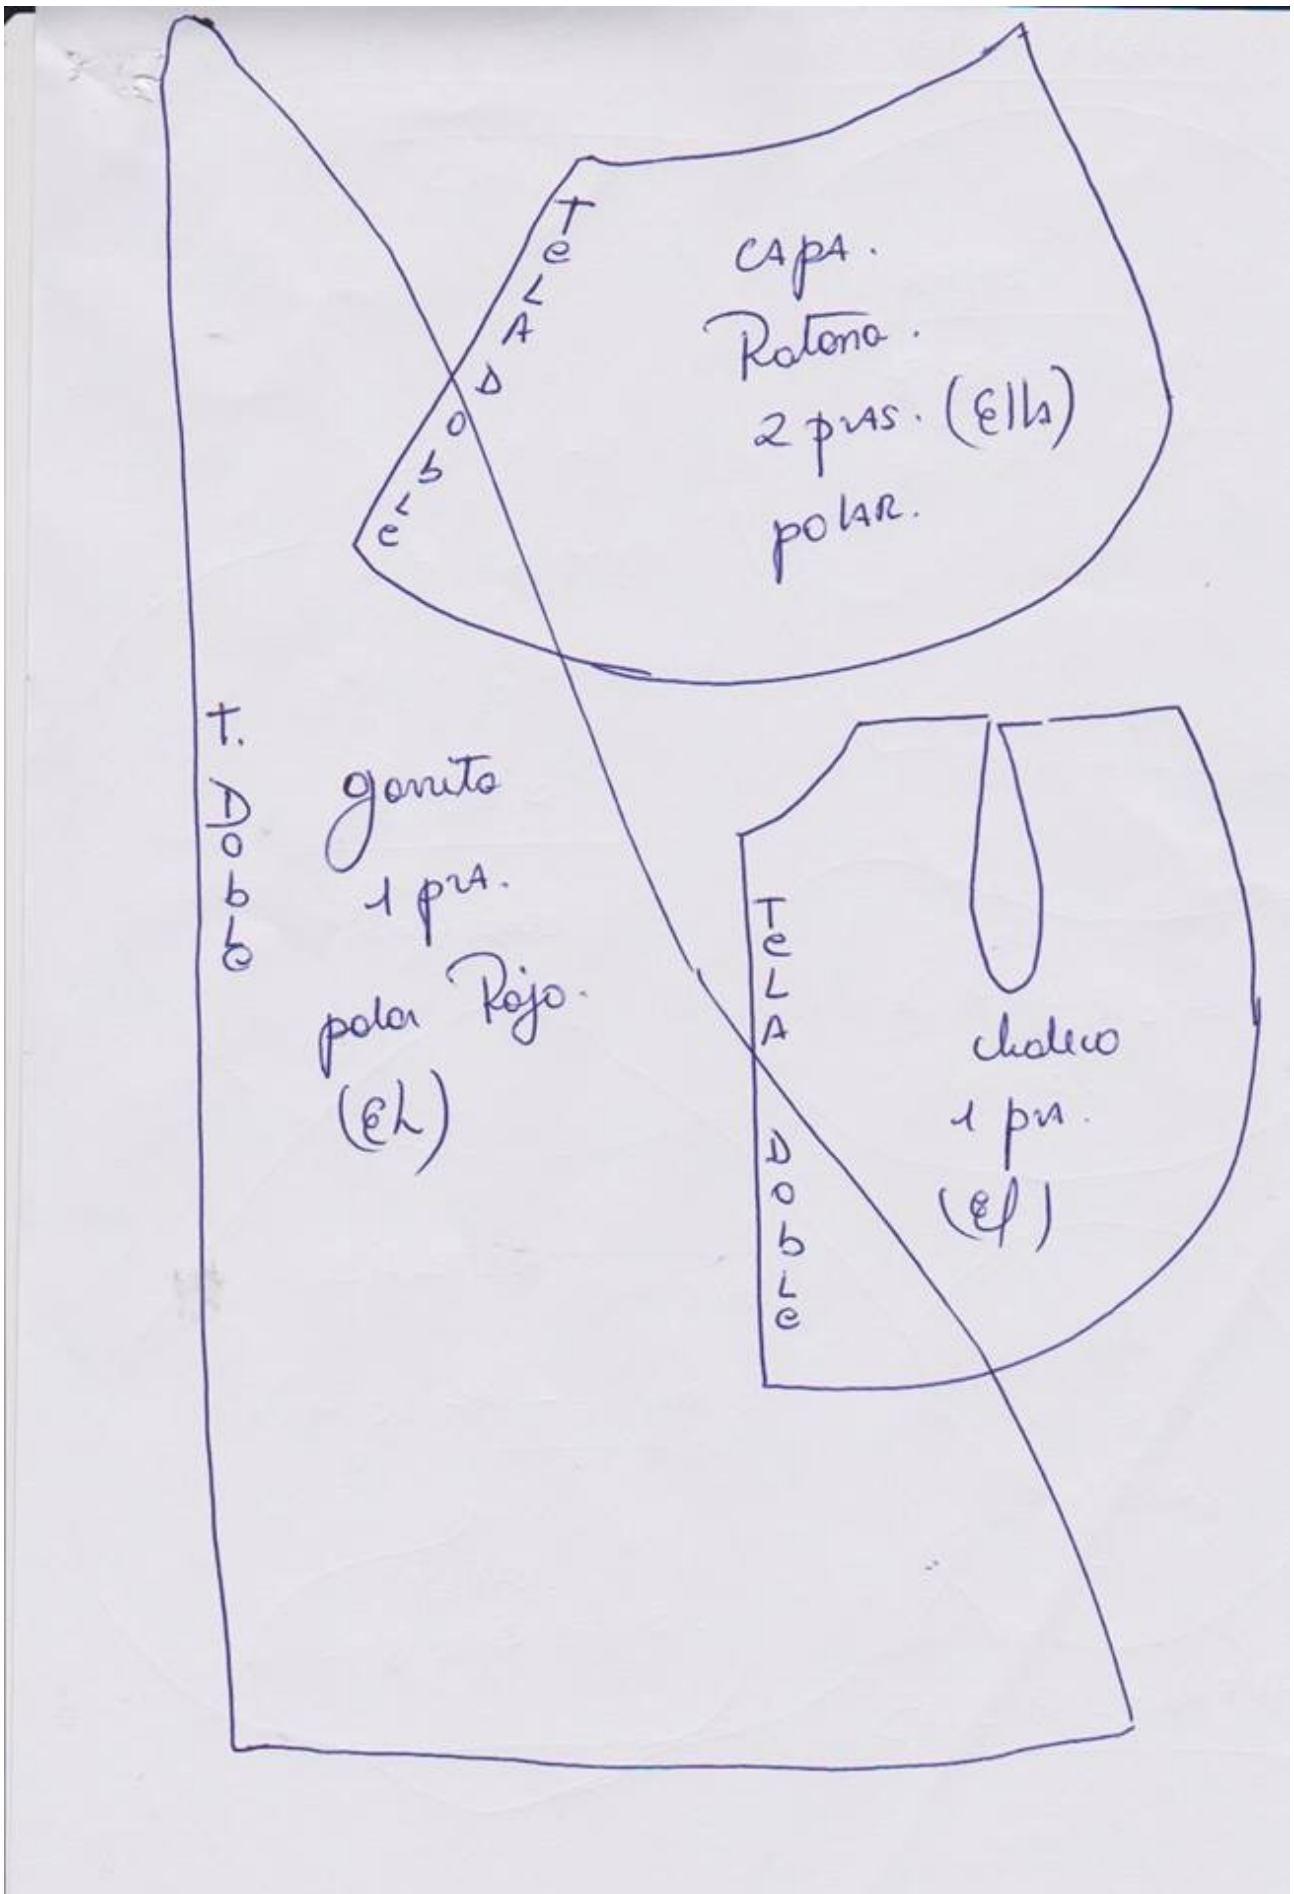 TeLA Doble
CAPA.
Ratona.
2 pzAS. (Ella)
polAR.
T. Doble
gorrito
1 pzA.
polar Rojo.
(eL)
TeLA DobLe
chaleco
1 pzA.
(el)